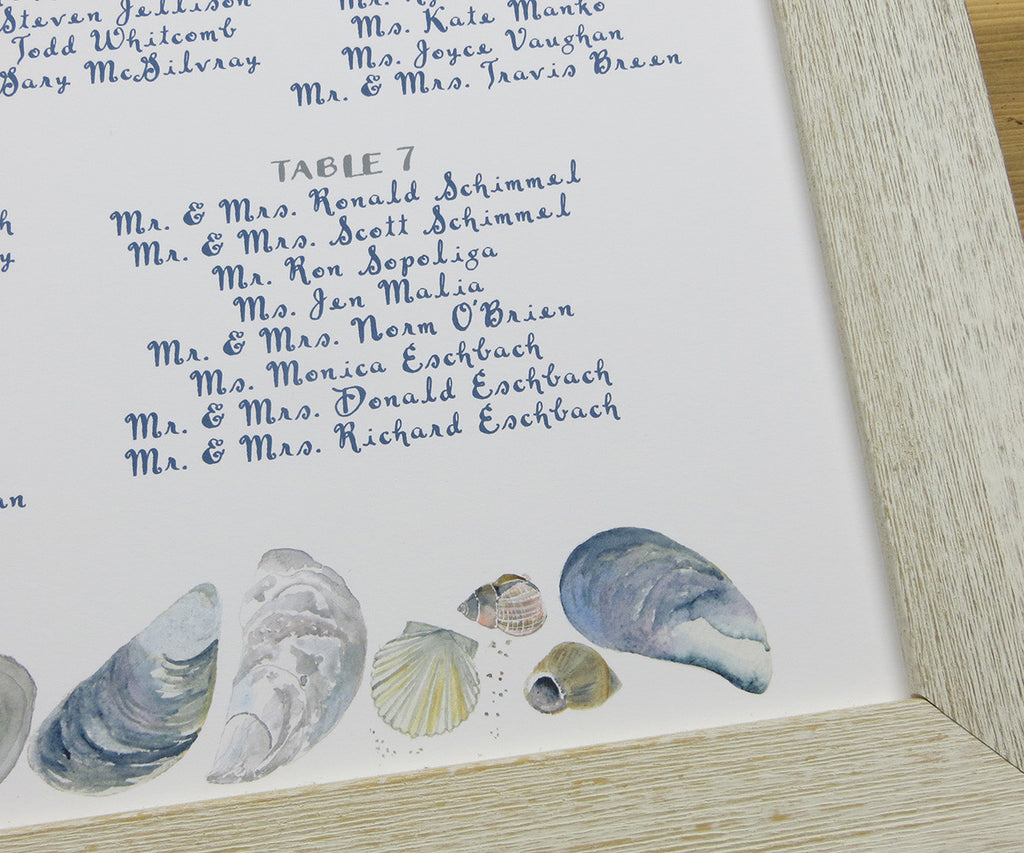 Steven Jellison
Todd Whitcomb
Gary McGilvray
Mr.
Ms. Kate Manko
Ms. Joyce Vaughan
Mr. & Mrs. Travis Breen
TABLE 7
Mr. & Mrs. Ronald Schimmel
Mr. & Mrs. Scott Schimmel
Mr. Ron Sopoliga
Ms. Jen Malia
Mr. & Mrs. Norm O'Brien
Ms. Monica Eschbach
Mr. & Mrs. Donald Eschbach
Mr. & Mrs. Richard Eschbach